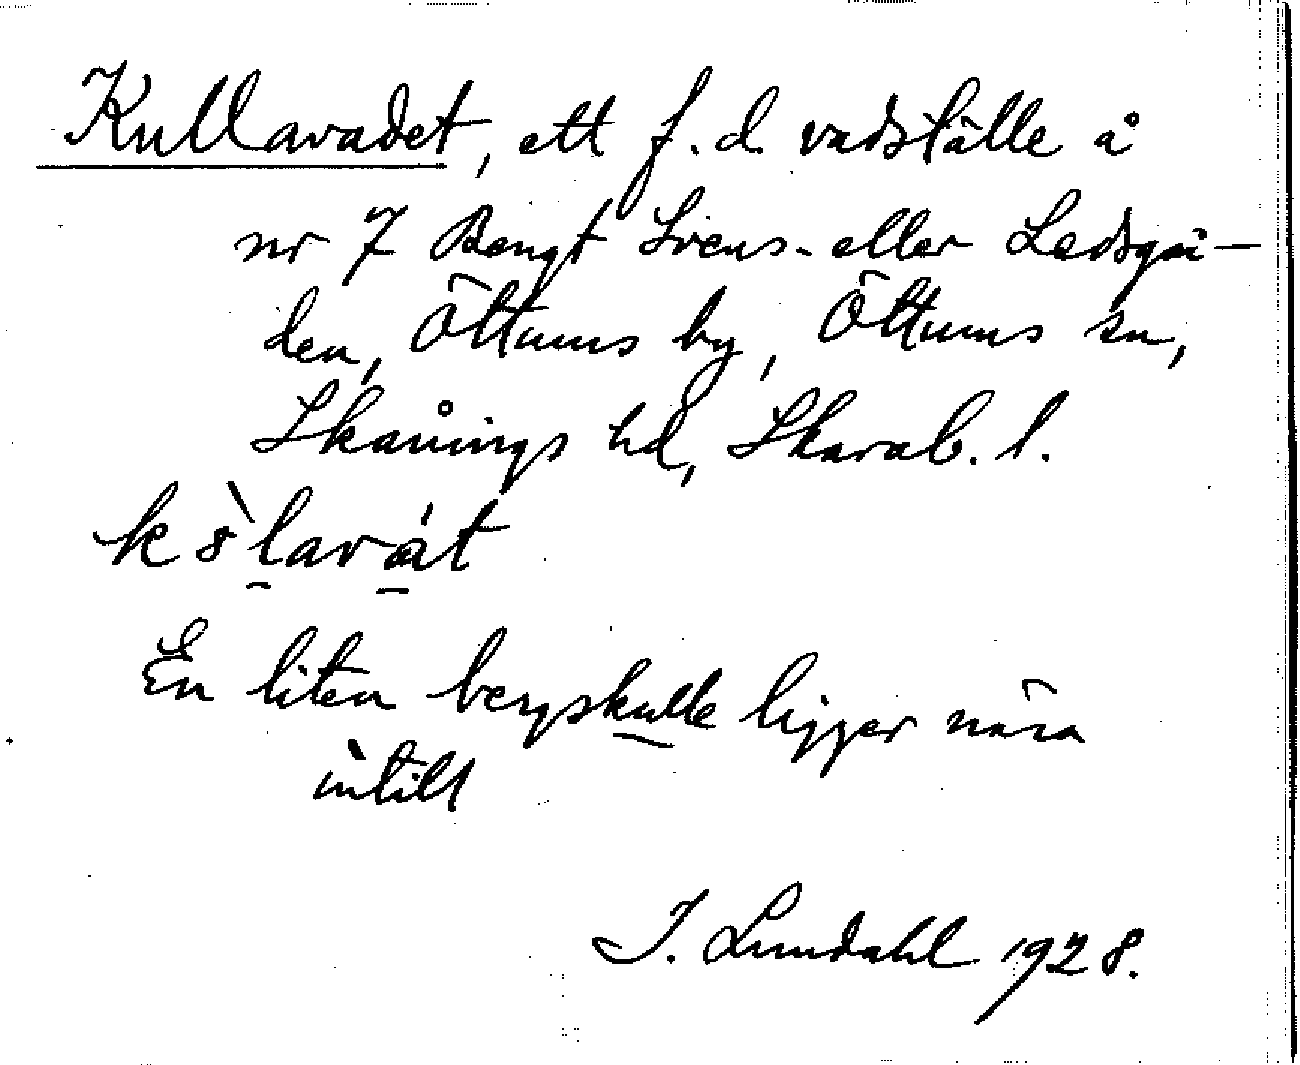 Kullavadet, ett f.d. vadställe å
nr 7 Bengt Svens- eller Ledsgår-
den, Öttums by, Öttums sn,
Skånings hd, Skarab. l.
En liten bergskulle ligger nära
intill
I. Lundahl 1928.